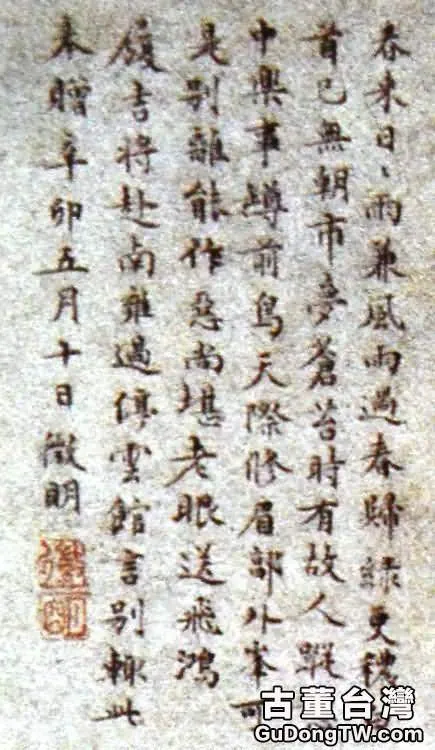 春来日〻雨兼風雨過春歸綠更穠
首已無朝市夢蒼苔時有故人蹤
中樂事罇前鳥天際修眉郭外峯可
是别離能作惡尚堪老眼送飛鴻
履吉將赴南雍過停雲館言别輙此
未贈辛卯五月十日徵明
徵明
古董台灣
GuDongTW.com